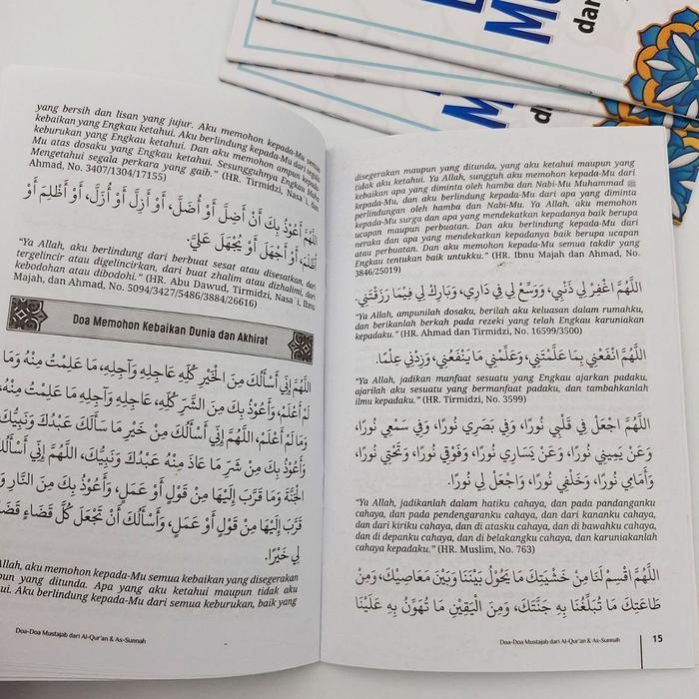 yang bersih dan lisan yang jujur. Aku memohon kepada-Mu
kebaikan yang Engkau ketahui. Aku berlindung kepada-Mu dari
keburukan yang Engkau ketahui. Dan aku memohon ampun
Mu atas dosaku yang Engkau ketahui. Sesungguhnya Engkau
Mengetahui segala perkara yang gaib." (HR. Tirmidzi, Nasa`i, dan
Ahmad, No. 3407/1304/17155)
أَعُوْذُ بِكَ أَنْ أَضِلَّ، أَوْ أُضَلَّ، أَوْ أَزِلَّ، أَوْ أُزَلَّ، أَوْ أَظْلِمَ أَوْ
أَوْ أَجْهَلَ أَوْ يُجْهَلَ عَلَيَّ.
"Ya Allah, aku berlindung dari berbuat sesat atau disesatkan, dari
tergelincir atau digelincirkan, dari buat zhalim atau dizhalimi, dari
kebodohan atau dibodohi." (HR. Abu Dawud, Tirmidzi, Nasa`i, Ibnu
Majah, dan Ahmad, No. 5094/3427/5486/3884/26616)
Doa Memohon Kebaikan Dunia dan Akhirat
اَللّٰهُمَّ إِنِّي أَسْأَلُكَ مِنَ الْخَيْرِ كُلِّهِ عَاجِلِهِ وَآجِلِهِ، مَا عَلِمْتُ مِنْهُ وَمَا
لَمْ أَعْلَمْ، وَأَعُوْذُ بِكَ مِنَ الشَّرِّ كُلِّهِ، عَاجِلِهِ وَآجِلِهِ مَا عَلِمْتُ مِنْهُ،
وَمَا لَمْ أَعْلَمْ، اَللّٰهُمَّ إِنِّي أَسْأَلُكَ مِنْ خَيْرِ مَا سَأَلَكَ عَبْدُكَ وَنَبِيُّكَ
وَأَعُوْذُ بِكَ مِنْ شَرِّ مَا عَاذَ مِنْهُ عَبْدُكَ وَنَبِيُّكَ، اَللّٰهُمَّ إِنِّي أَسْأَلُكَ
الْجَنَّةَ وَمَا قَرَّبَ إِلَيْهَا مِنْ قَوْلٍ أَوْ عَمَلٍ، وَأَعُوْذُ بِكَ مِنَ النَّارِ
قَرَّبَ إِلَيْهَا مِنْ قَوْلٍ أَوْ عَمَلٍ، وَأَسْأَلُكَ أَنْ تَجْعَلَ كُلَّ قَضَاءٍ
لِي خَيْرًا.
Allah, aku memohon kepada-Mu semua kebaikan yang disegerakan
yang ditunda. Apa yang aku ketahui maupun tidak aku
Aku berlindung kepada-Mu dari semua keburukan, baik yang
Doa-Doa Mustajab dari Al-Qur'an & As-Sunnah
disegerakan maupun yang ditunda, yang aku ketahui maupun yang
tidak aku ketahui. Ya Allah, sungguh aku memohon kepada-Mu
kebaikan apa yang diminta oleh hamba dan Nabi-Mu Muhammad ﷺ
kepada-Mu, dan aku berlindung kepada-Mu dari apa yang diminta
perlindungan oleh hamba dan Nabi-Mu. Ya Allah, aku memohon
kepada-Mu surga dan apa yang mendekatkan kepadanya baik berupa
ucapan maupun perbuatan. Dan aku berlindung kepada-Mu dari
neraka dan apa yang mendekatkan kepadanya baik berupa ucapan
atau perbuatan. Dan aku memohon kepada-Mu semua takdir yang
Engkau tentukan baik untukku." (HR. Ibnu Majah dan Ahmad, No.
3846/25019)
اَللّٰهُمَّ اغْفِرْ لِي ذَنْبِي، وَوَسِّعْ لِي فِي دَارِي، وَبَارِكْ لِي فِيْمَا رَزَقْتَنِي.
"Ya Allah, ampunilah dosaku, berilah aku keluasan dalam rumahku,
dan berikanlah berkah pada rezeki yang telah Engkau karuniakan
kepadaku." (HR. Ahmad dan Tirmidzi, No. 16599/3500)
اَللّٰهُمَّ انْفَعْنِي بِمَا عَلَّمْتَنِي، وَعَلِّمْنِي مَا يَنْفَعُنِي، وَزِدْنِي عِلْمًا.
"Ya Allah, jadikan manfaat sesuatu yang Engkau ajarkan padaku,
ajarilah aku sesuatu yang bermanfaat padaku, dan tambahkanlah
ilmu kepadaku." (HR. Tirmidzi, No. 3599)
اَللّٰهُمَّ اجْعَلْ فِي قَلْبِي نُوْرًا، وَفِي بَصَرِي نُوْرًا، وَفِي سَمْعِي نُوْرًا،
وَعَنْ يَمِيْنِي نُوْرًا، وَعَنْ يَسَارِي نُوْرًا، وَفَوْقِي نُوْرًا، وَتَحْتِي نُوْرًا،
وَأَمَامِي نُوْرًا، وَخَلْفِي نُوْرًا، وَاجْعَلْ لِي نُوْرًا.
"Ya Allah, jadikanlah dalam hatiku cahaya, dan pada pandanganku
cahaya, dan pada pendengaranku cahaya, dan dari kananku cahaya,
dan dari kiriku cahaya, dan di atasku cahaya, dan di bawahku cahaya,
dan di depanku cahaya, dan di belakangku cahaya, dan karuniakanlah
cahaya kepadaku." (HR. Muslim, No. 763)
اَللّٰهُمَّ اقْسِمْ لَنَا مِنْ خَشْيَتِكَ مَا يَحُوْلُ بَيْنَنَا وَبَيْنَ مَعَاصِيْكَ، وَمِنْ
طَاعَتِكَ مَا تُبَلِّغُنَا بِهِ جَنَّتَكَ، وَمِنَ الْيَقِيْنِ مَا تُهَوِّنُ بِهِ عَلَيْنَا
Doa-Doa Mustajab dari Al-Qur'an & As-Sunnah 15